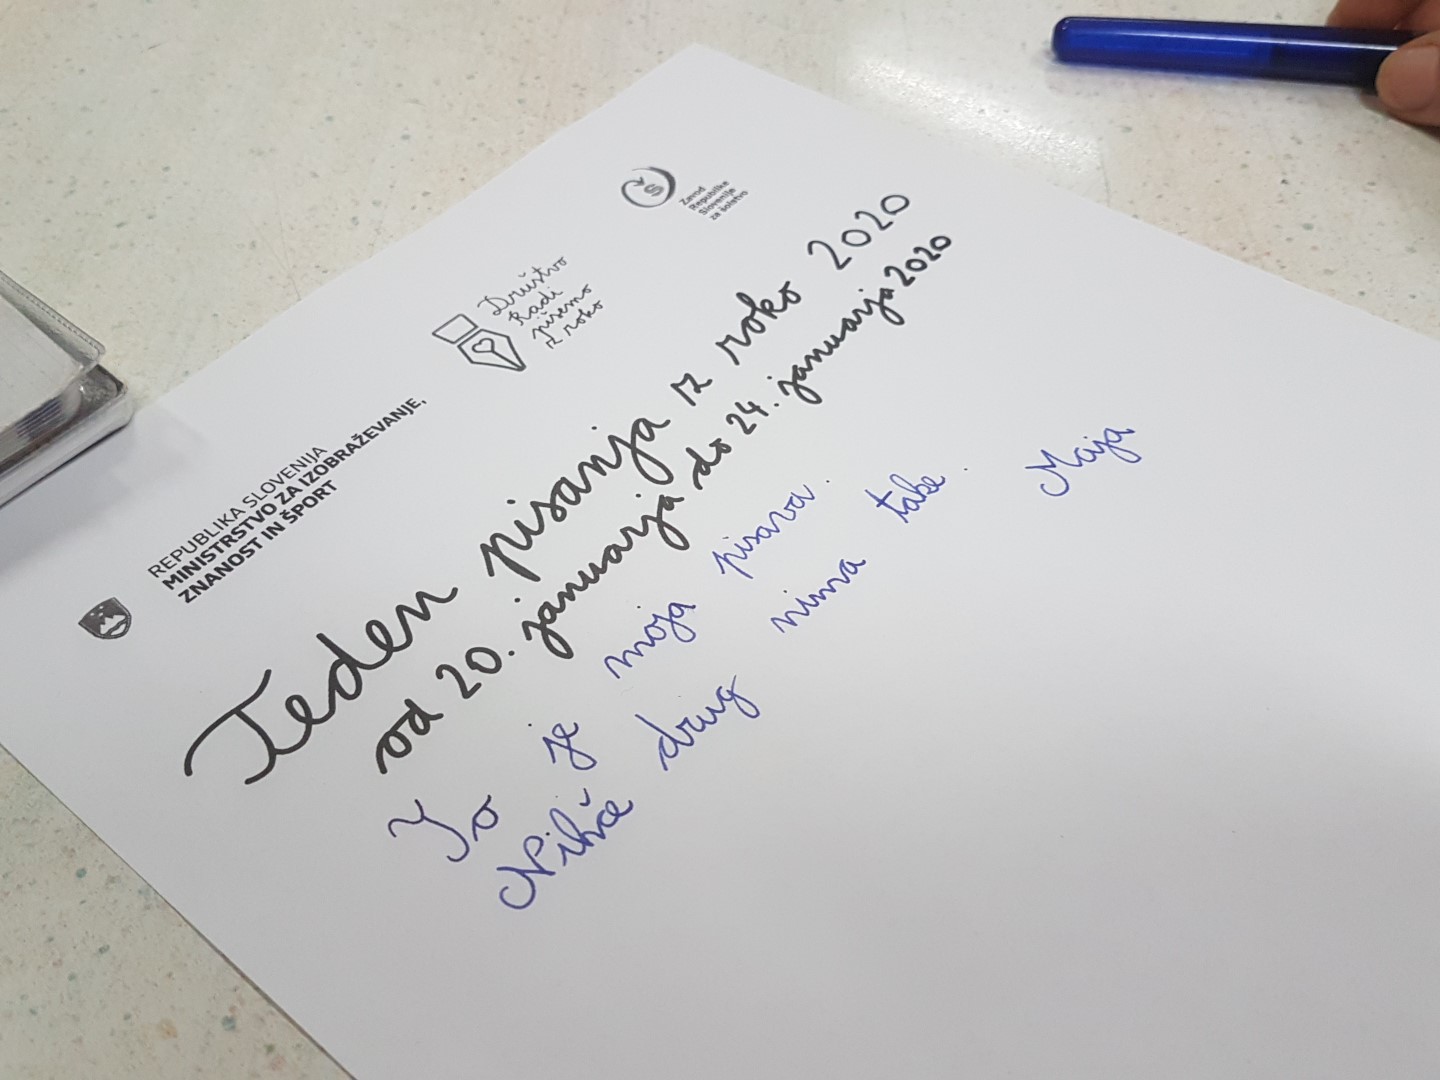 REPUBLIKA SLOVENIJA
MINISTRSTVO ZA IZOBRAŽEVANJE,
ZNANOST IN ŠPORT
Društvo
Radi
pišemo
z roko
Zavod
Republike
Slovenije
za šolstvo
Teden pisanja z roko 2020
od 20. januarja do 24. januarja 2020
To je moja pisava.
Nihče drug nima take.
Maja